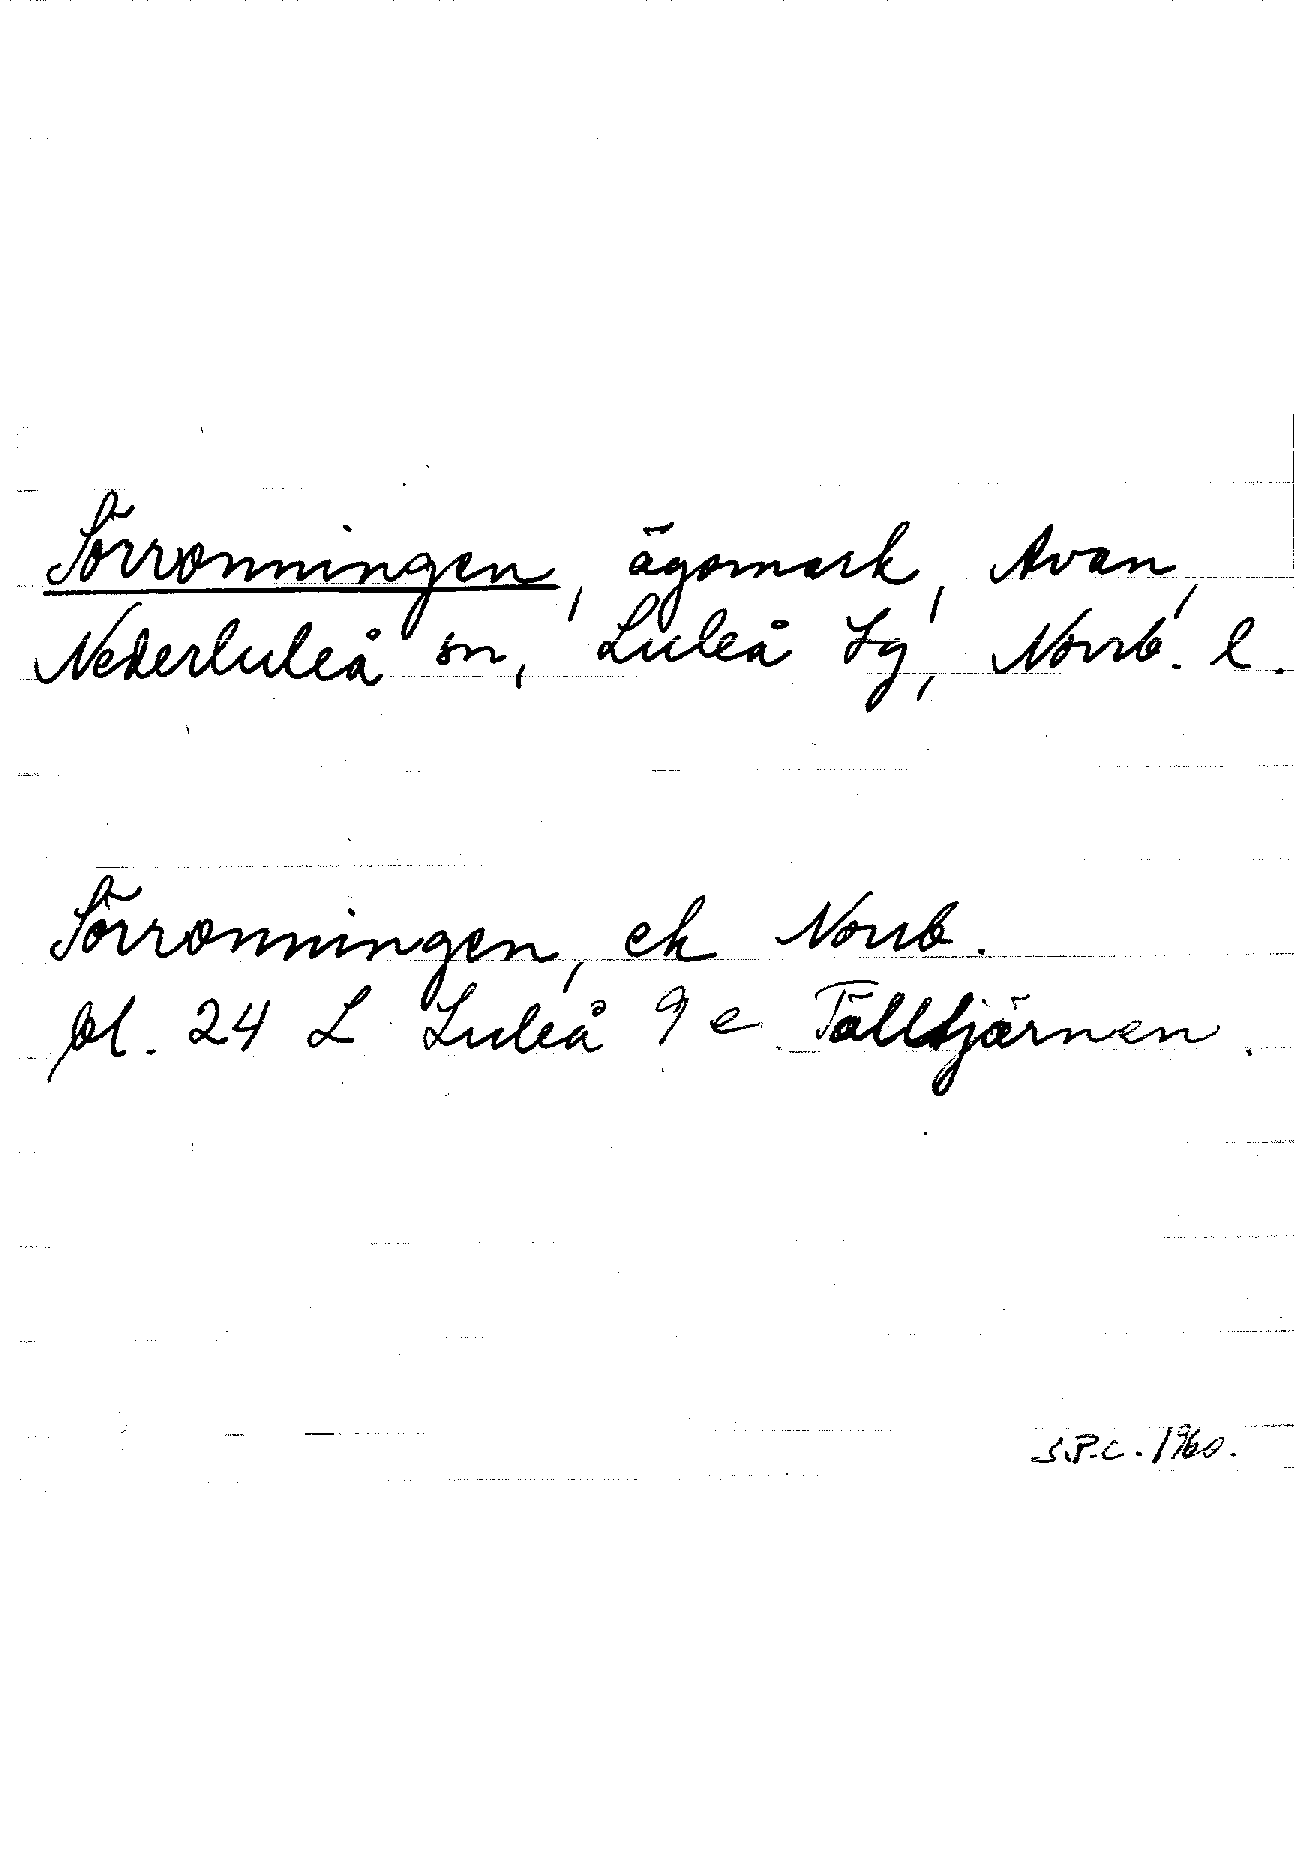 Sörronningen, ägomark, Avan,
Nederluleå sn, Luleå tg, Norrb. l.
Sörronningen, ek Norrb.
bl. 24 L Luleå 9 e Tälltjärnen.
S.P.C. 1960.